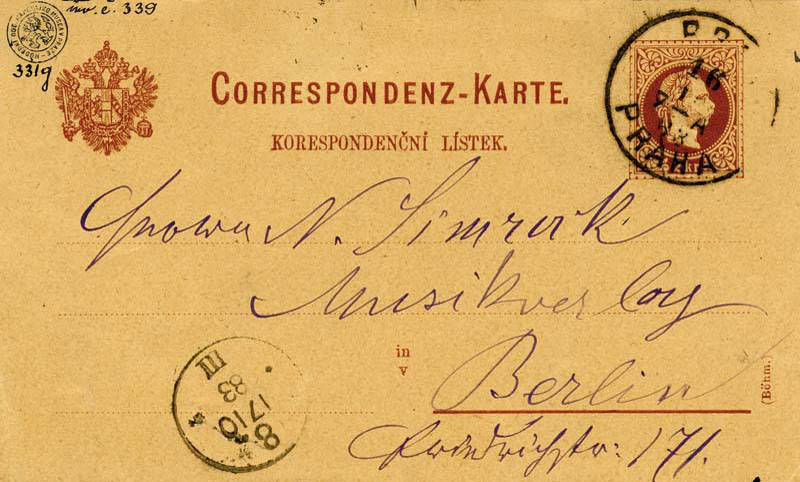 inv. č. 339
331g
CORRESPONDENZ-KARTE.
KORESPONDENČNÍ LÍSTEK.
16
PRAHA
N. Simrock
Musikverlag
in
v
Berlin
(Böhm.)
Friedrichstr: 171.
III
83
17 10
8